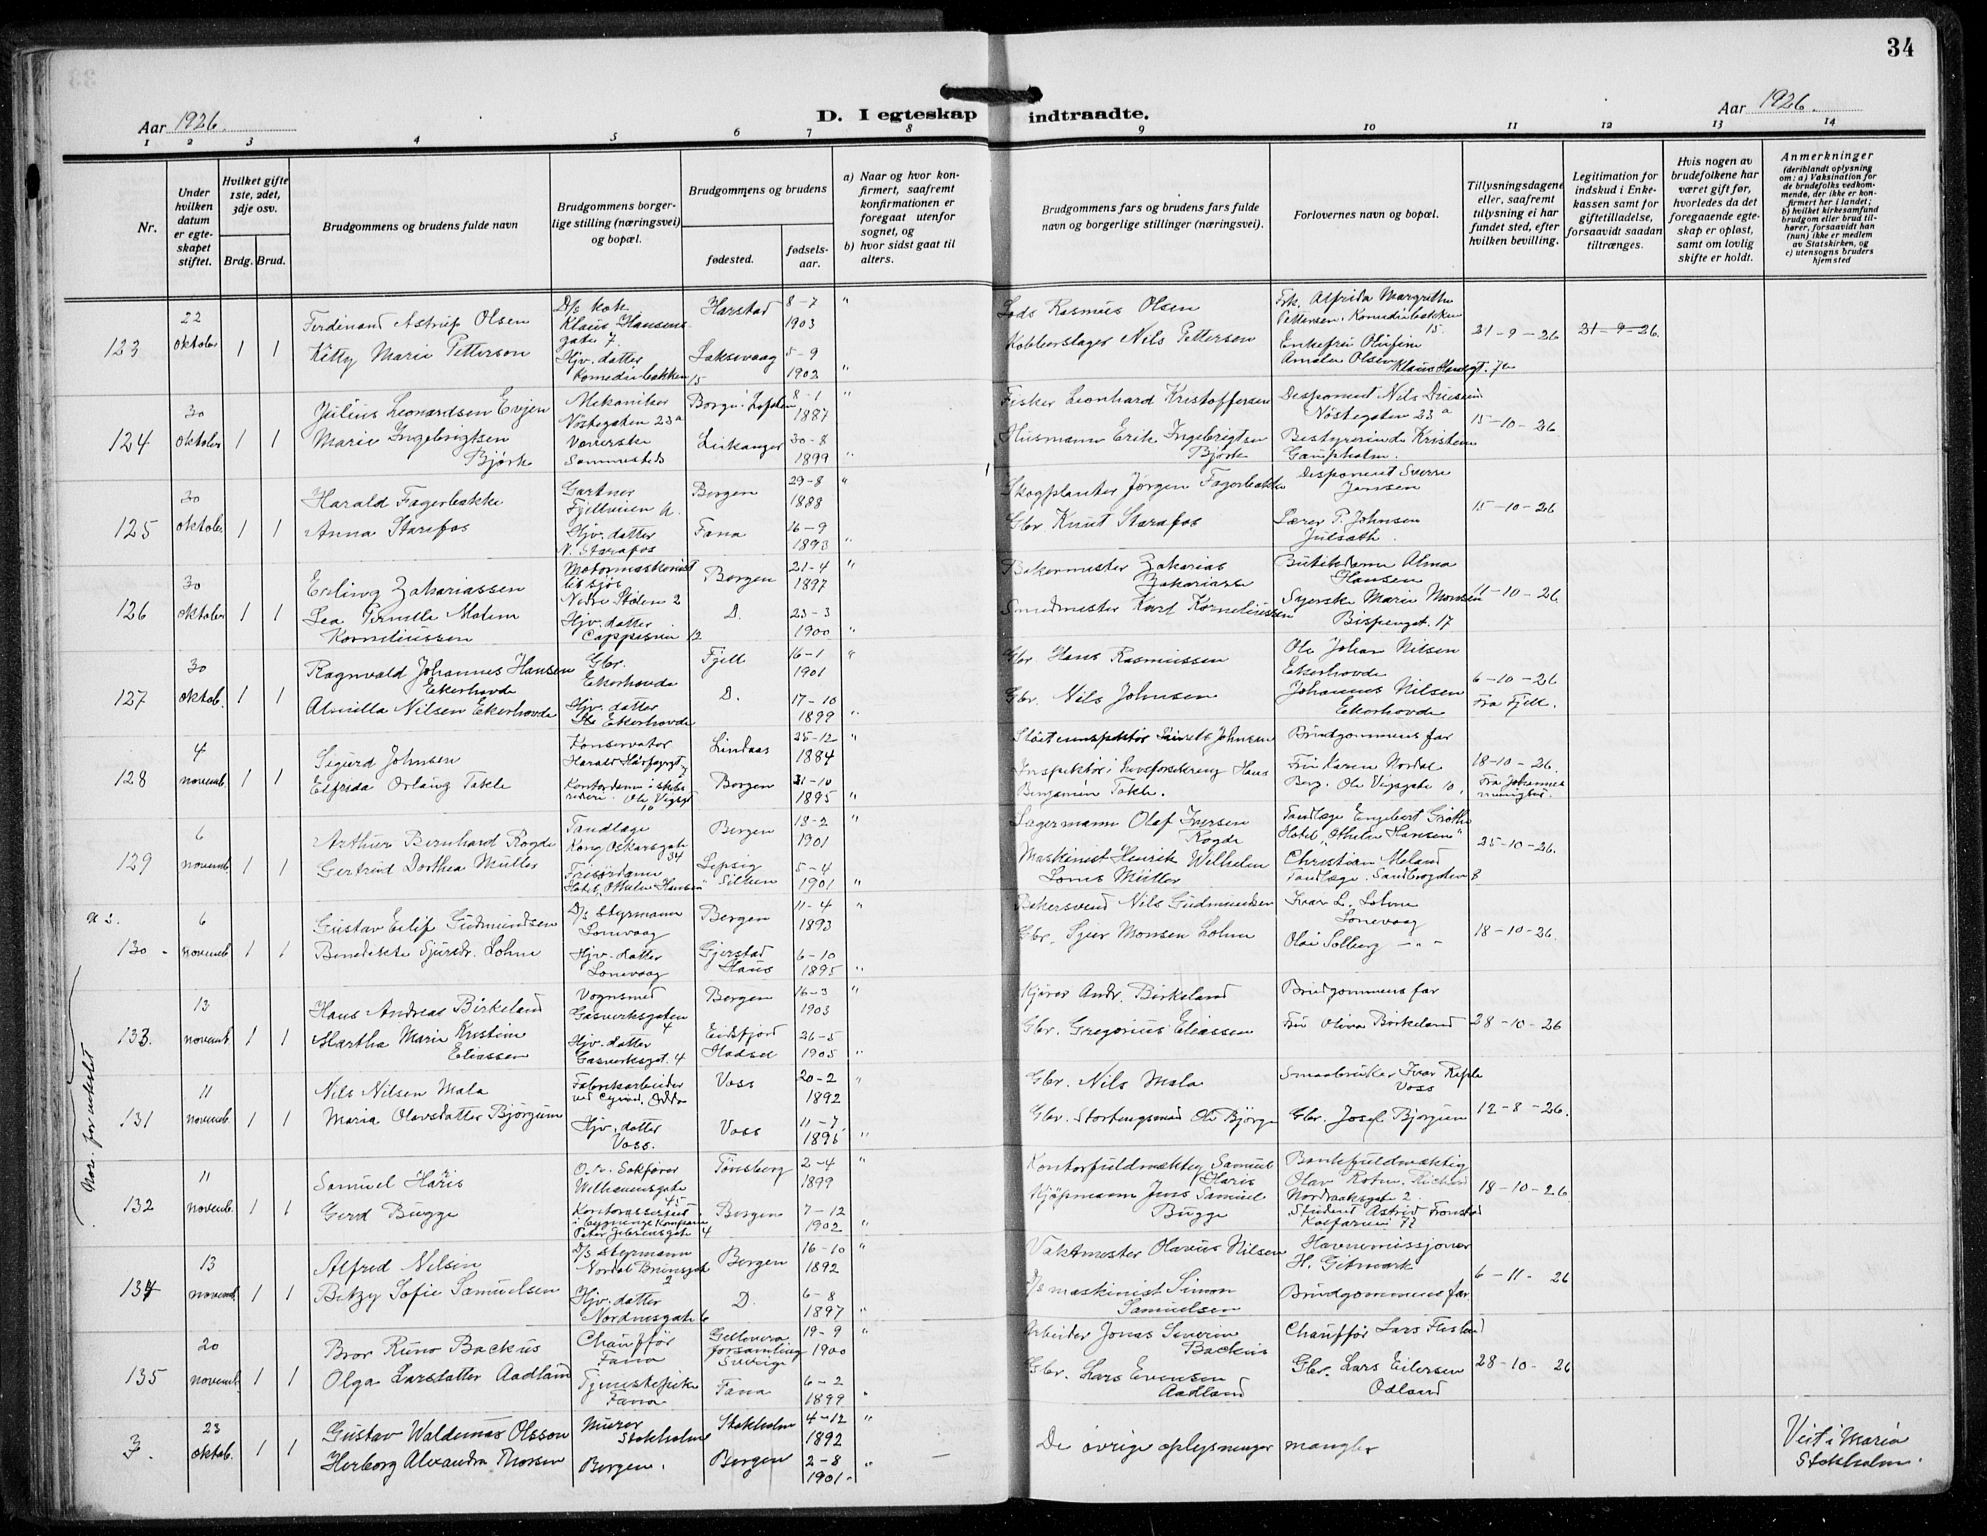 34
Aar 1926.
D. I egteskap indtraadte.
Aar 1926.
1 2 3 4 5 6 7 8 9 10 11 12 13 14
Nr.
Under hvilken datum er egteskapet stiftet.
Hvilket gifte 1ste, 2det, 3dje osv.
Brdg. Brud.
Brudgommens og brudens fulde navn
Brudgommens borgerlige stilling (næringsvei) og bopæl.
Brudgommens og brudens
fødested.
fødselsaar.
a) Naar og hvor konfirmert, saafremt konfirmationen er foregaat utenfor sognet, og
b) hvor sidst gaat til alters.
Brudgommens fars og brudens fars fulde navn og borgerlige stillinger (næringsvei).
Forlovernes navn og bopæl.
Tillysningsdagene eller, saafremt tillysning ei har fundet sted, efter hvilken bevilling.
Legitimation for indskud i Enkekassen samt for giftetilladelse, forsaavidt saadan tiltrænges.
Hvis nogen av brudefolkene har været gift før, hvorledes da det foregaaende egteskap er opløst, samt om lovlig skifte er holdt.
Anmerkninger (deriblandt oplysning om: a) Vaksination for de brudefolks vedkommende, der ikke er konfirmert her i landet; b) hvilket kirkesamfund brudgom eller brud tilhører, forsaavidt han (hun) ikke er medlem av Statskirken, og c) utensogns bruders hjemsted
123 22 oktober 1 1
Ferdinand Astrup Olsen
D/s kok Klaus Hansens gate 7.
Harstad 8-7 1903 "
Lods Rasmus Olsen
Frk. Alfrida Margrethe Pettersen. Komediebakken 15.
21-9-26 21-9-26.
Kitty Marie Petterson
Hjv. datter Komediebakken 15
Laksevaag 5-9 1902 "
Kobberslager Nils Pettersen
Enkefru Amalie Olsen Klaus Hansgt. 7
124 30 oktober 1 1
Julius Leonardsen Evjen
Mekaniker Nøstegaten 23a
8-1 1887 "
Fisker Leonhard Kristoffersen
Desponent Nils
Nøstegaten 23a
15-10-26
Marie Ingebrigtsen Bjørk
Væverske Sammesteds
Leikanger 30-8 1899 "
Husmann Erik Ingebrigtsen Bjørk
Bestyrerinde Kristine
125 30 oktober 1 1
Harald Fagerbakke
Gartner
Bergen 29-8 1888 "
Skogplanter Jørgen Fagerbakke
Desponent Sverre Jansen
15-10-26
Anna Starefos
Hjv. datter N. Starefos
Fana 16-9 1893 "
Gbr Knut Starefos
Lærer P. Johnsen
126 30 oktober 1 1
Erling Zakariassen
Motormaskinist tilsjøs Nedre Stølen 2
Bergen 21-4 1897 "
Bakermester Zakarias Zakariasse
Butikdame Alma Hansen
11-10-26
Lea Pernille Malene Korneliussen
Hjv. datter 12
D. 23-3 1900 "
Smedmester Karl Korneliussen
Syerske Marie Monsen Bispengt. 17
127 30 oktob. 1 1
Ragnvald Johannes Hansen Ekerhovde
Gbr. Ekerhovde
Fjell 16-1 1901 "
Gbr. Hans Rasmussen
Ole Johan Nilsen Ekerhovde
6-10-26
Fra Fjell.
Nilsen Ekerhovde
Hjv. datter Ekerhovde
D. 17-10 1899 "
Gbr. Nils Johnsen
Johannes Nilsen Ekerhovde
128 4 novemb. 1 1
Sigurd Johnsen
Konservator Harald Haarfagregt
Lindaas 25-12 1884 "
Johnsen
Brudgommens far
18-10-26.
Elfrida Takle
Kontordame i skibsrederi. Ole Vigsgt 10
Bergen 31-10 1895 "
Inspektør i Livsforsikring Hans Benjamin Takle.
Fru Karen Nordal Berg. Ole Vigsgate 10,
Fra Johannes menighet.
129 6 novemb. 1 1
Arthur Bernhard Rogde
Tandlæge Kong Oskarsgate 34
Bergen 13-2 1901 "
Lagermann Olaf Iversen Rogde
Tandlæge Engebert
Hotel "Othelie Hansen"
25-10-26.
Gertrud Dorthea Müller
Frisørdame Hotel "Othelie Hansen"
Lepsig 5-4 1901 "
Maskinist Henrik Wilhelm Müller
Christian Meland Tandlæge. Sandbrogaten 8
130 6 novemb. 1 1
Gustav Eilif Gudmundsen
D/s Styrmann Lonevaag
Bergen 11-4 1893 "
Bakersvend Nils Gudmundsen
Ivar L. Lohne Lonevaag
18-10-26.
Benedikte Sjursdr. Lohne
Hjv. datter Lonevaag
Gjerstad Haus 6-10 1895 "
Gbr. Sjur Monsen Lohne
Olai Solberg - " -
Nor. forvekslet
133. 13 novemb. 1 1
Hans Andreas Birkeland
Vognsmed Gasverksgaten 4
Bergen 16-3 1903 "
Kjører Andr. Birkeland
Brudgommens far
28-10-26
Martha Marie Kristine Eliassen
Hjv. datter Gasverksgt. 4
Eidsfjord Hadsel 26-5 1905 "
Gbr. Gregorius Eliassen
Fru Oliva Birkeland
131 11 novemb. 1 1
Nils Nilsen Mala
Fabrikarbeider ved Cyanid. Odda
Voss 20-2 1892 "
Gbr. Nils Mala
Smaabruker Ivar Voss
12-8-26.
Maria Olavsdatter Bjørgum
Hjv. datter Voss.
Voss 11-7 1895 "
Gbr. Stortingsmand Ole Bjørgum
Gbr. Josef Bjørgum
132 11 novemb. 1 1
Samuel Haris
O. r. Sakfører Welhavensgate 45
Tønsberg 2-4 1899 "
Kontorfuldmægtig Samuel Haris
Bankfuldmægtig Olav Nordraaksgate 2
18-10-26
Gerd Bugge
Peter Jebsensgate 4
Bergen 7-12 1902 "
Kjøpmann Jens Samuel Bugge
Student Astrid Kalfarvei 77
134 13 novemb. 1 1
Alfred Nilsen
D/s Styrmann Nordal Brunsgt 2
Bergen 16-10 1892 "
Vaktmester Olavus Nilsen
Havnemissjonær H. Gitmark
6-11-26
Betzy Sofie Samuelsen
Hjv. datter Nordnesgate 6
D. 6-8 1897 "
D/s maskinist Simon Samuelsen
Brudgommens far
135 20 novemb. 1 1
Bror Runo Backus
Chauffør Fana
Gellivera forsamling Sverige 19-9 1900 "
Arbeider Jonas Severin Backus
Chauffør Lars
28-10-26
Olga Larsdatter Aadland
Tjenestepike Fana
Fana 6-2 1899 "
Gbr. Lars Evensen Aadland
Gbr. Lars Eilersen Odland
3. 23 oktob. 1 1
Gustav Waldemar Olsson
Murer Stokholm
Stokholm 4-12 1892 "
De øvrige oplysninger mangler
Viet i Maria Stokholm.
Herborg Alexandra Thorsen
Bergen.
Bergen 2-8 1901. "